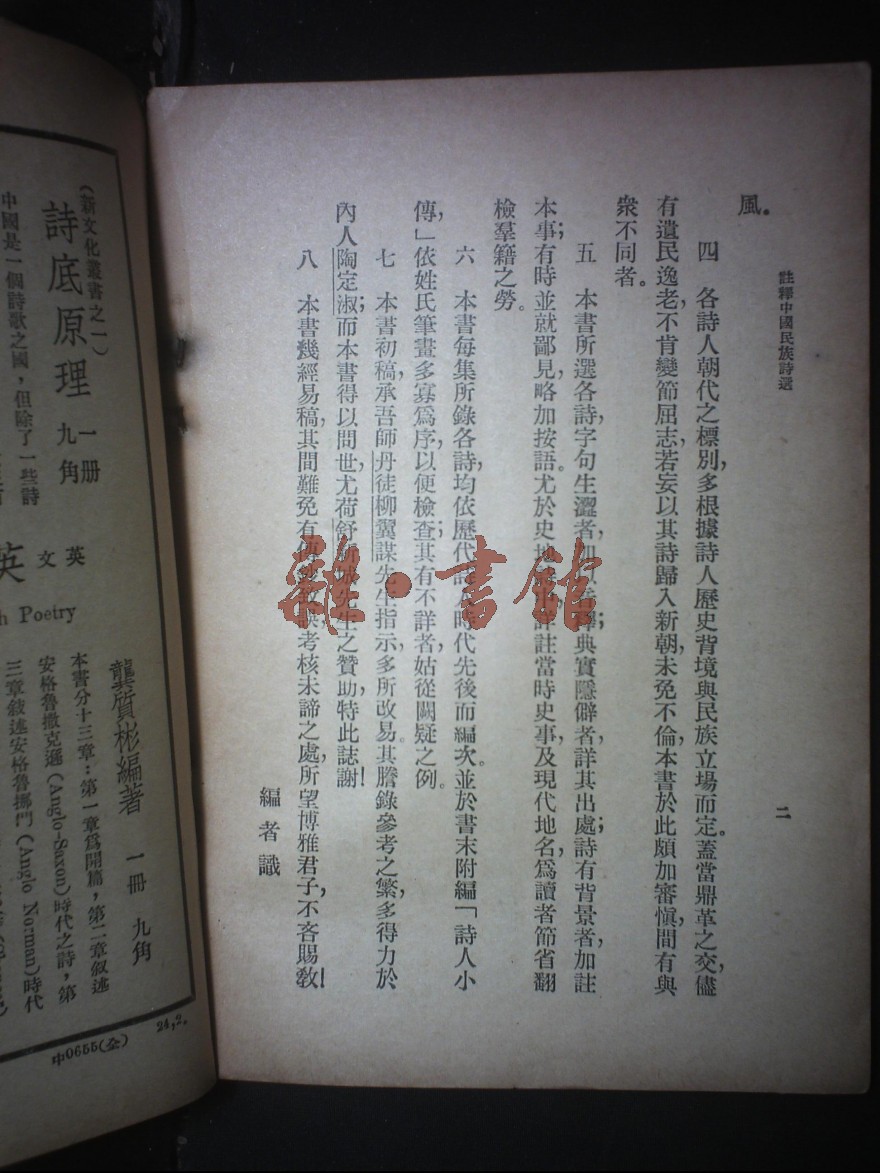 註釋中國民族詩選
二
風。
四　各詩人朝代之標別，多根據詩人歷史背境與民族立場而定。蓋當鼎革之交，儘
有遺民逸老，不肯變節屈志，若妄以其詩歸入新朝，未免不倫，本書於此頗加審愼，間有與
衆不同者。
五　本書所選各詩，字句生澀者，加以音釋；典實隱僻者，詳其出處；詩有背景者，加註
本事；有時並就鄙見，略加按語。尤於史地 詳註當時史事，及現代地名，爲讀者節省翻
檢羣籍之勞。
六　本書每集所錄各詩，均依歷代詩人時代先後而編次。並於書末附編「詩人小
傳」，依姓氏筆畫多寡爲序，以便檢查；其有不詳者，姑從闕疑之例。
七　本書初稿，承吾師丹徒柳翼謀先生指示，多所改易。其謄錄參考之繁，多得力於
內人陶定淑；而本書得以問世，尤荷舒新城先生之贊助，特此誌謝！
八　本書幾經易稿，其間難免有傳鈔致誤，考核未諦之處，所望博雅君子，不吝賜敎！
編者識
雜·書館
（新文化叢書之一）
詩底原理　一册　九角
中國是一個詩歌之國，但除了一些詩
英文
英
h Poetry
龔質彬編著　一冊　九角
本書分十三章：第一章爲開篇，第二章叙述
安格魯撒克遜（Anglo-Saxon）時代之詩，第
三章叙述安格魯挪門（Anglo Norman）時代
中0655（全）　24,2.